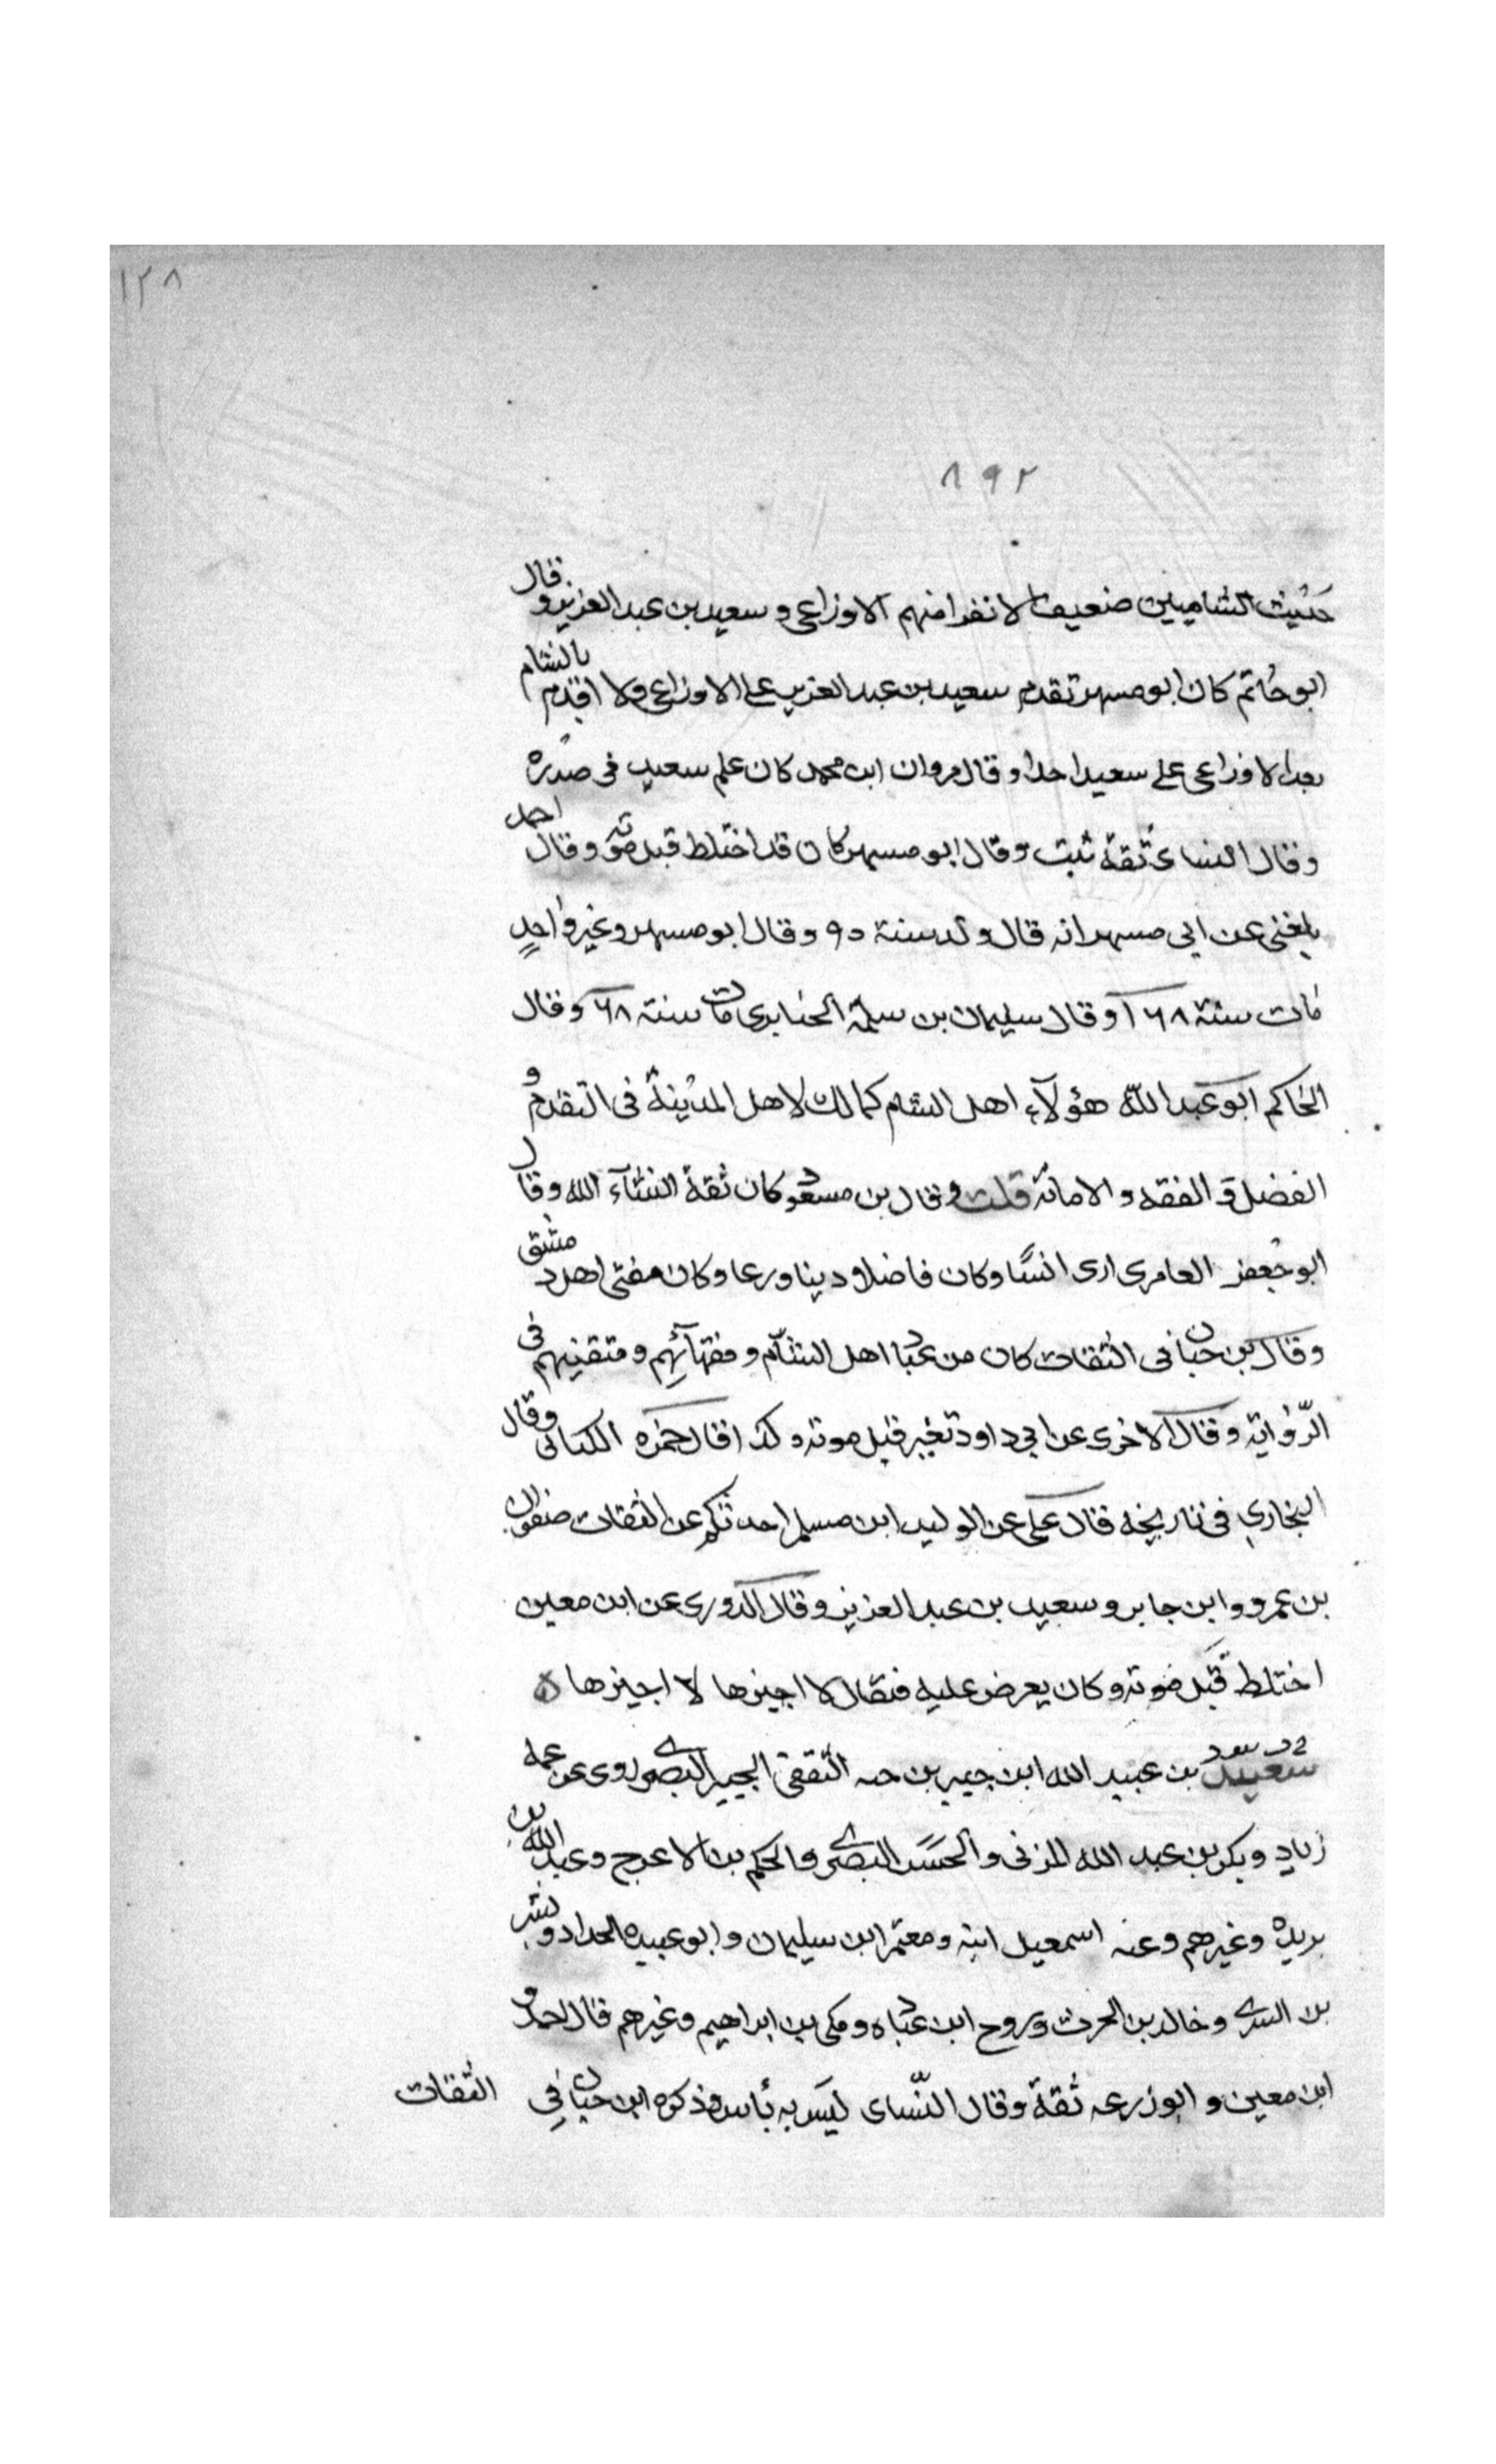 ١٢٨
٨٩٢
حديث الشاميين ضعيف الا نفرا منهم الاوزاعى و سعيد بن عبد العزيز و قال
ابو حاتم كان ابو مسهر تقدم سعيد بن عبد العزيز على الاوزاعى ولا اقدم بالشام
بعد الاوزاعى على سعيد احدا و قال مروان ابن محمد كان علم سعيد فى صدره
و قال النساى ثقة ثبت و قال ابو مسهر كان قد اختلط قبل موته و قال احمد
بلغنى عن ابى مسهر انه قال ولد سنة ٩٠ و قال ابو مسهر و غير واحد
مات سنة ١٦٨ و قال سليمان بن سلمة الخبايرى مات سنة ٦٨ و قال
الحاكم ابو عبد الله هؤلآء اهل الشام كمالك لاهل المدينة فى التقدم و
الفضل و الفقه و الامانة قلت و قال بن مسعود كان ثقة انشآء الله و قال
ابو جعفر العامرى ارى انسًا و كان فاضلا دينا ورعا و كان مفتى اهل دمشق
و قال بن حبان فى الثقات كان من عباد اهل الشآم و فقهآئهم و متقنيهم فى
الرواية و قال الاخرى عن ابى داود تغير قبل موته و كذا قال حمزه الكنانى و قال
البخارى فى تاريخه قال على عن الوليد ابن مسلم احدثكم عن الثقات صفوان
بن عمرو و ابن جابر و سعيد بن عبد العزيز و قال الدورى عن ابن معين
اختلط قبل موته و كان يعرض عليه فيقال لا اجيزها لا اجيزها ه
سعيد بن عبيد الله ابن جبير بن حيه الثقفى الجبيرى البصرى روى عن عمه
زياد و بكر بن عبد الله المزنى و الحسن البصرى و الحكم بن الاعرج و عبد الله بن
بريده و غيرهم و عنه اسمعيل ابنه و معتمر ابن سليمان و ابو عبيده الحداد و بشر
بن السرى و خالد بن الحرث و روح ابن عباده و مكى بن ابراهيم و غيرهم قال احمد و
ابن معين و ابو زرعه ثقة و قال النّساى ليس به بأس و ذكره ابن حبان فى الثقات